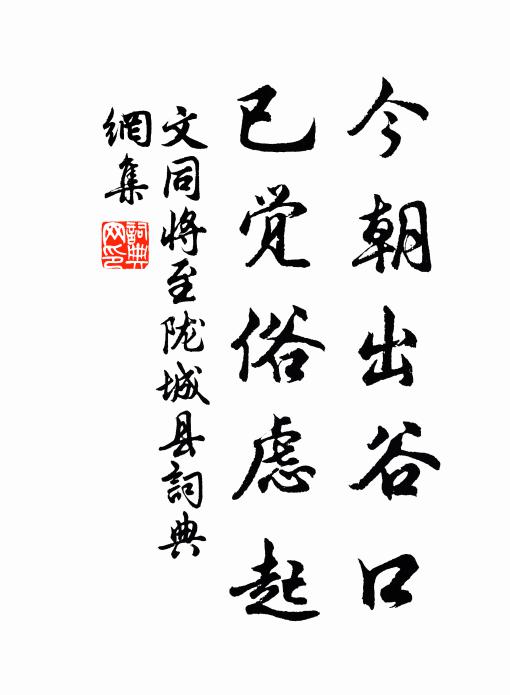 今朝出谷口
已觉俗虑起
文同将至陇城县詞典
網集
詞典
网印